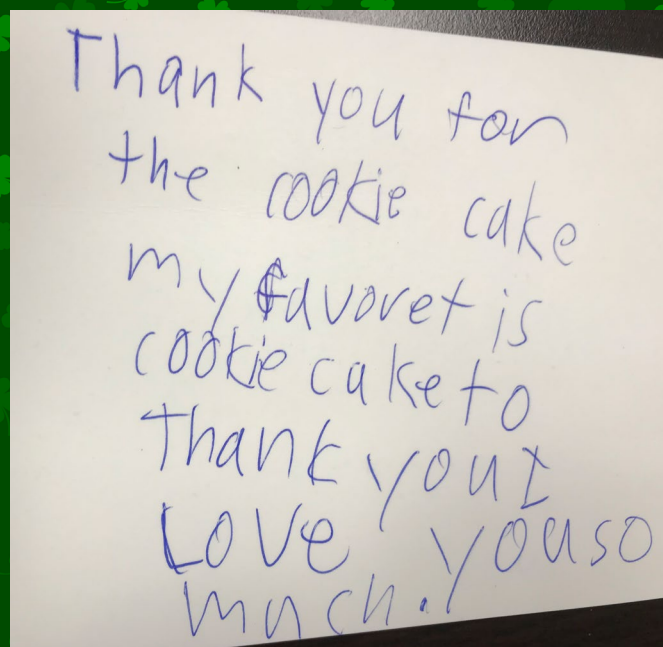 Thank you for
the cookie cake
my favoret is
cookie cake to
Thank you I
Love you so
much.